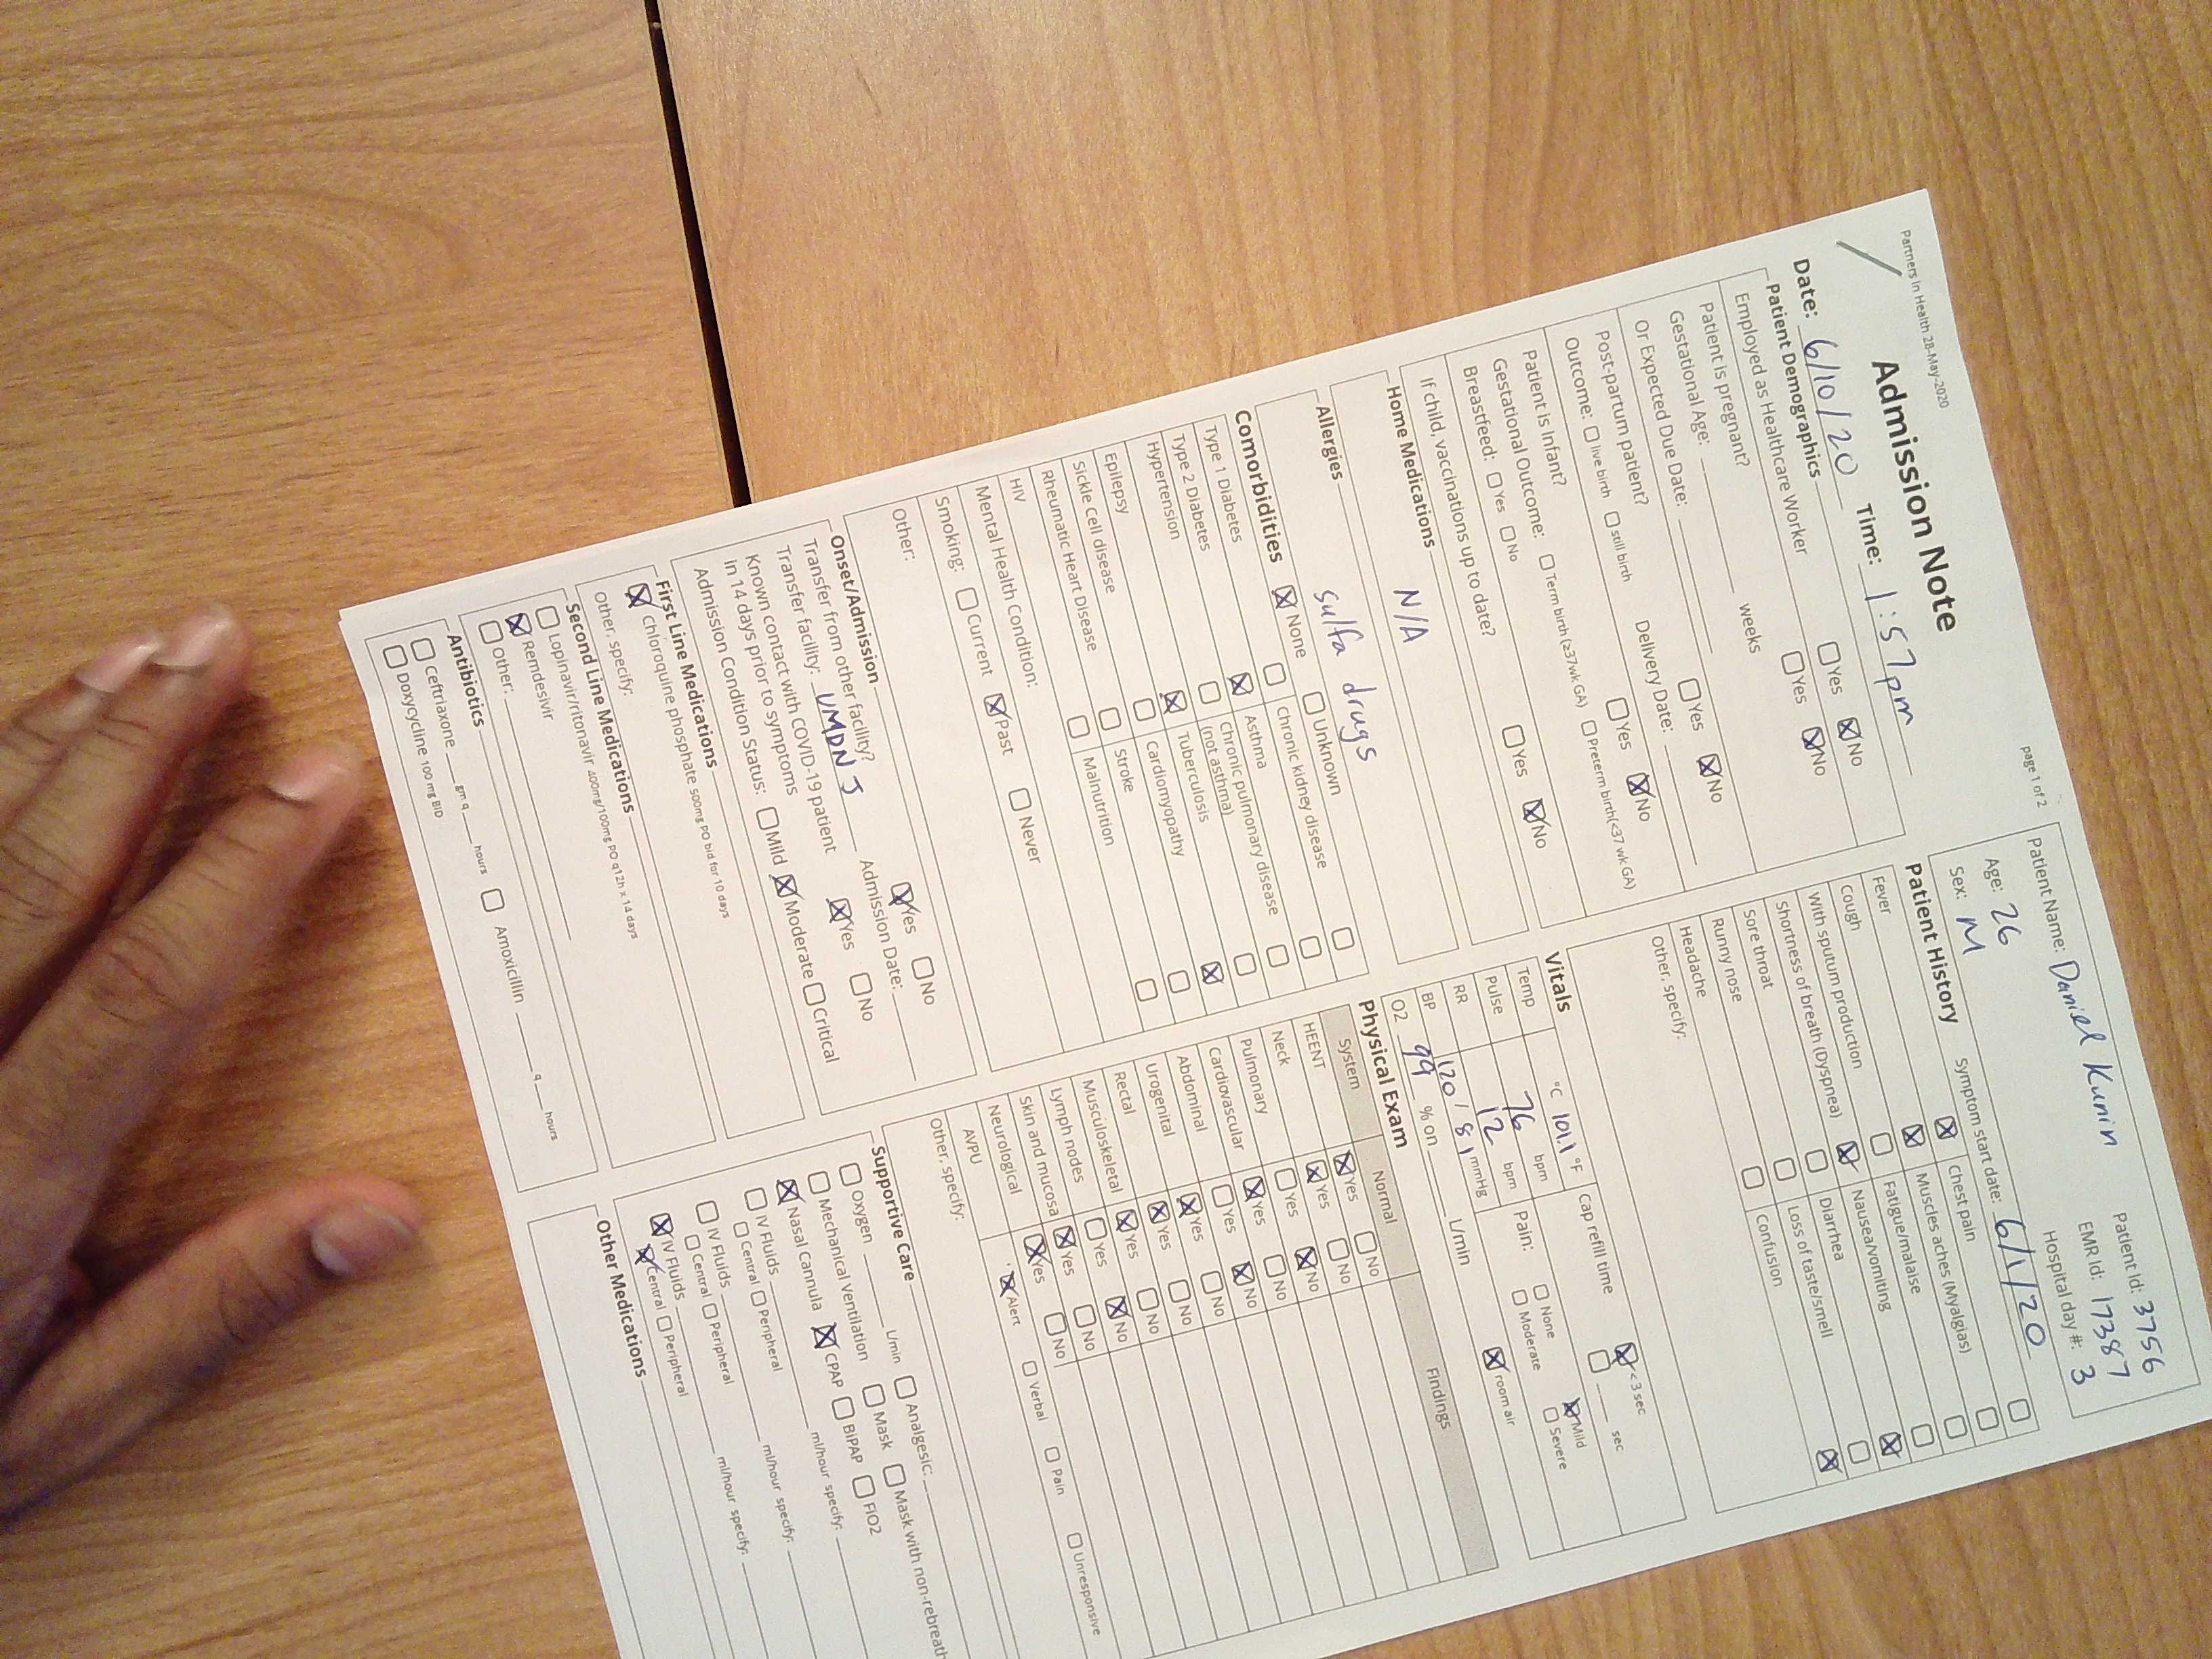 Partners In Health 28-May-2020
page 1 of 2
Admission Note
Date: 6/10/20 Time: 1:57pm
Patient Demographics
Employed as Healthcare Worker ☐Yes ☒No
Patient is pregnant? ☐Yes ☒No
Gestational Age: ____ weeks
Or Expected Due Date: ____
Post-partum patient? ☐Yes ☒No
Outcome: ☐ live birth ☐ still birth Delivery Date: ____
Patient is Infant? ☐Yes ☒No
Gestational Outcome: ☐ Term birth (≥37wk GA) ☐ Preterm birth(<37 wk GA)
Breastfeed: ☐ Yes ☐ No
If child, vaccinations up to date? ☐Yes ☒No
Home Medications
N/A
Allergies
sulfa drugs
Comorbidities ☒ None ☐ Unknown
Type 1 Diabetes ☐
Type 2 Diabetes ☒
Hypertension ☐
Epilepsy ☒
Sickle Cell disease ☐
Rheumatic Heart Disease ☐
HIV ☐
Chronic kidney disease ☐
Asthma ☐
Chronic pulmonary disease ☐
(not asthma)
Tuberculosis ☐
Cardiomyopathy ☒
Stroke ☐
Malnutrition ☐
Mental Health Condition:
Smoking: ☐ Current ☒ Past ☐ Never
Other:
Onset/Admission
Transfer from other facility? ☒Yes ☐No
Transfer facility: UMDNJ Admission Date: ____
Known contact with COVID-19 patient
in 14 days prior to symptoms ☒Yes ☐No
Admission Condition Status: ☐Mild ☒Moderate ☐Critical
First Line Medications
☒ Chloroquine phosphate 500mg PO bid for 10 days
Other, specify:
Second Line Medications
☐ Lopinavir/ritonavir 400mg/100mg PO q12h x 14 days
☒ Remdesivir
☐ Other: ____
Antibiotics
☐ Ceftriaxone ____ gm q ____ hours ☐ Amoxicillin ____ q ____ hours
☐ Doxycycline 100 mg BID
Patient Name: Daniel Kunin
Patient Id: 3756
Age: 26
EMR Id: 17387
Sex: M
Hospital day #: 3
Patient History Symptom start date: 6/1/20
Fever ☒ Chest pain ☐
Cough ☒ Muscles aches (Myalgias) ☐
With sputum production ☐ Fatigue/malaise ☐
Shortness of breath (Dyspnea) ☒ Nausea/vomiting ☐
Sore throat ☐ Diarrhea ☒
Runny nose ☐ Loss of taste/smell ☐
Headache ☐ Confusion ☒
Other, specify:
Vitals
Temp °C 101.1 °F
Pulse 76 bpm
RR 12 bpm
BP 120 / 81 mmHg
O2 99 % on ____ L/min ☒ room air
Cap refill time ☒ <3 sec
☐ ____ sec
Pain: ☐ None ☒ Mild
☐ Moderate ☐ Severe
Physical Exam
System Normal Findings
HEENT ☒Yes ☐No
Neck ☒Yes ☐No
Pulmonary ☐Yes ☒No
Cardiovascular ☒Yes ☐No
Abdominal ☐Yes ☒No
Urogenital ☒Yes ☐No
Rectal ☒Yes ☐No
Musculoskeletal ☒Yes ☐No
Lymph nodes ☐Yes ☒No
Skin and mucosa ☒Yes ☐No
Neurological ☒Yes ☐No
AVPU ☒ Alert ☐ Verbal ☐ Pain ☐ Unresponsive
Other, specify:
Supportive Care
☐ Oxygen ____ L/min ☐ Analgesic: ____
☐ Mechanical Ventilation ☐ Mask ☐ Mask with non-rebreath
☒ Nasal Cannula ☒ CPAP ☐ BIPAP ☐ FIO2
☐ IV Fluids ____ ml/hour specify: ____
☐ Central ☐ Peripheral
☐ IV Fluids ____ ml/hour specify: ____
☐ Central ☐ Peripheral
☒ IV Fluids ____ ml/hour specify: ____
☒ Central ☐ Peripheral
Other Medications